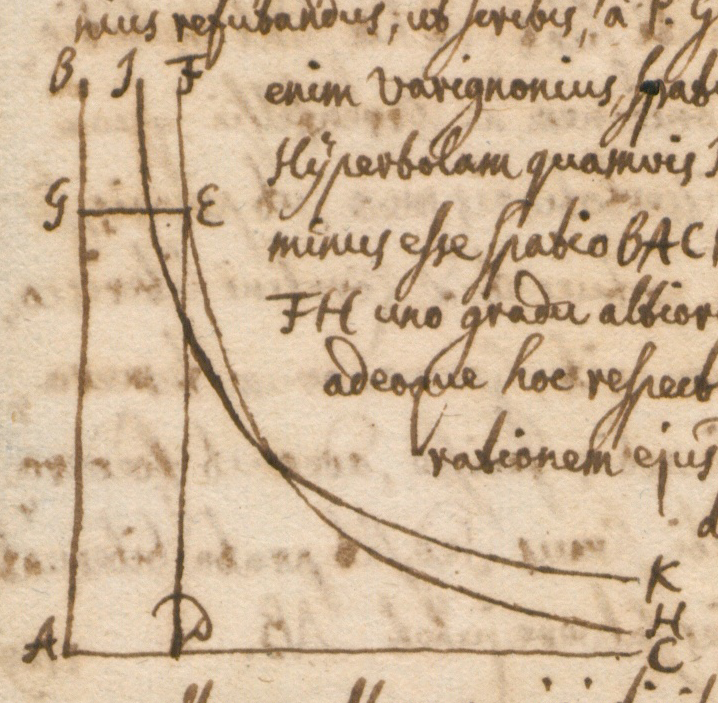 nius refutandus, ut scribis, a P. G
B J F
enim Varignonius, spat
Hÿperbolam quamvis J
G E
minus esse spatio BAC
FH uno gradu altior
adeoque hoc respect
rationem ejus
d
K
H
A D C